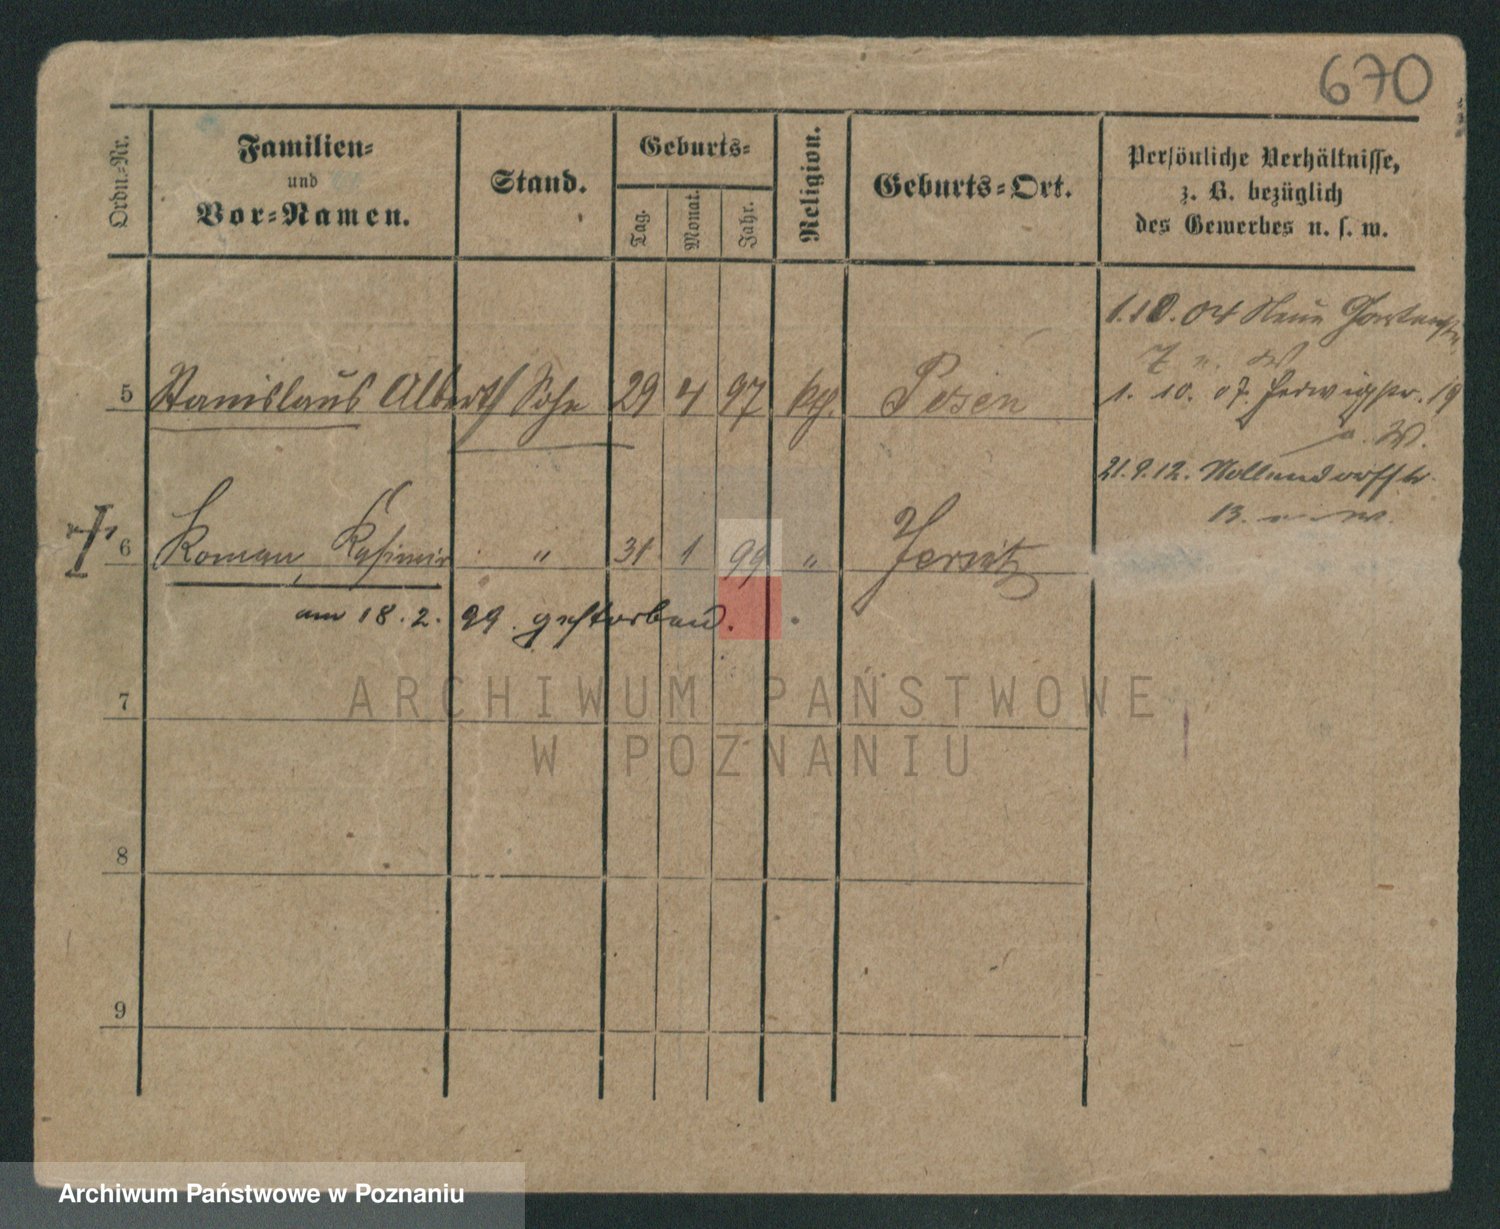 670
Ordn.-Nr.
Familien-
und
Vor-Namen.
Stand.
Geburts-
Tag.
Monat.
Jahr.
Religion.
Geburts-Ort.
Persönliche Verhältnisse,
z. B. bezüglich
des Gewerbes u. s. w.
1.10.04 Neue Gartenstr.
7 W
5 Stanislaus Albert Sohn 29 4 97 kg. Posen
1. 10. 07. Herwigstr. 19
W.
21.9.12. Nollendorffstr.
13. W.
6 Roman, Kasimir " 31 1 99 " Jersitz
am 18.2.99. gestorben.
ARCHIWUM PAŃSTWOWE
W POZNANIU
7
8
9
Archiwum Państwowe w Poznaniu